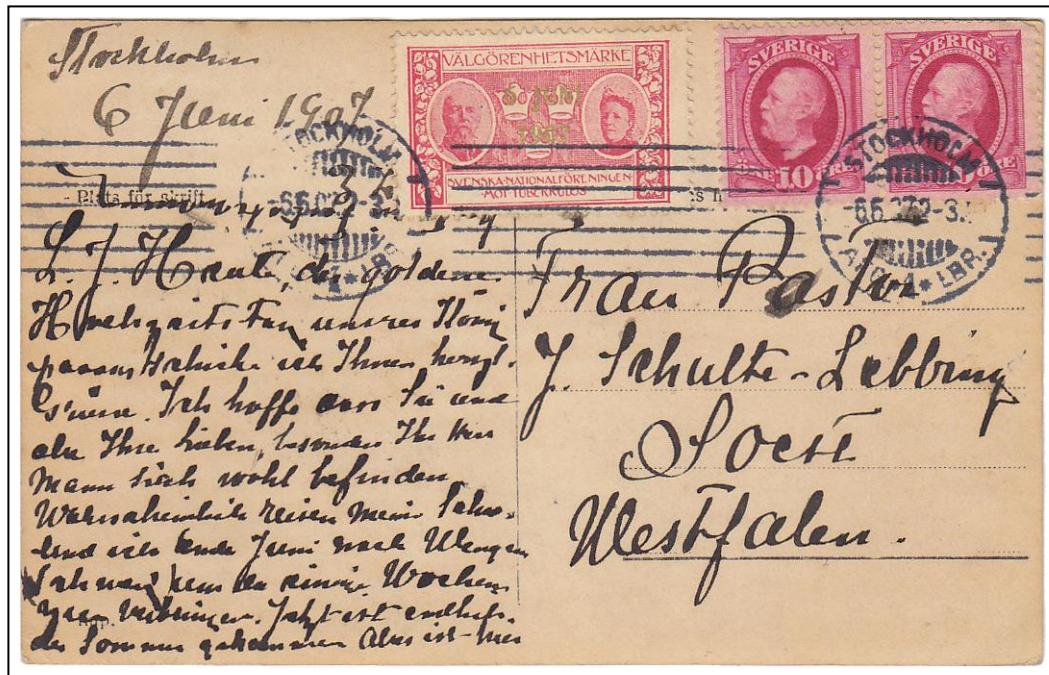 Stockholm
6 Juni 1907
VÄLGÖRENHETSMÄRKE
6 JUNI
1907
SVENSKA·NATIONALFÖRENINGEN
·MOT·TUBERKULOS·
SVERIGE
10 ÖRE
SVERIGE
ÖRE
STOCKHOLM
6.6.07
STOCKHOLM
6.6.07 2-3
LBR.
Plats för skrift
L. J. Heute, der goldene
Hochzeitstag unseres König
paares schicke ich Ihnen herzl.
Grüsse. Ich hoffe dass Sie und
alle Ihre Lieben, besonders Ihr Herr
Mann sich wohl befinden
Wahrscheinlich reisen meine
und ich Ende Juni nach
um da einige Wochen
zu verbringen. Jetzt ist endlich
der Sommer gekommen Aber ist
Frau Pastor
J. Schulte-Lebbing
Soest
Westfalen.